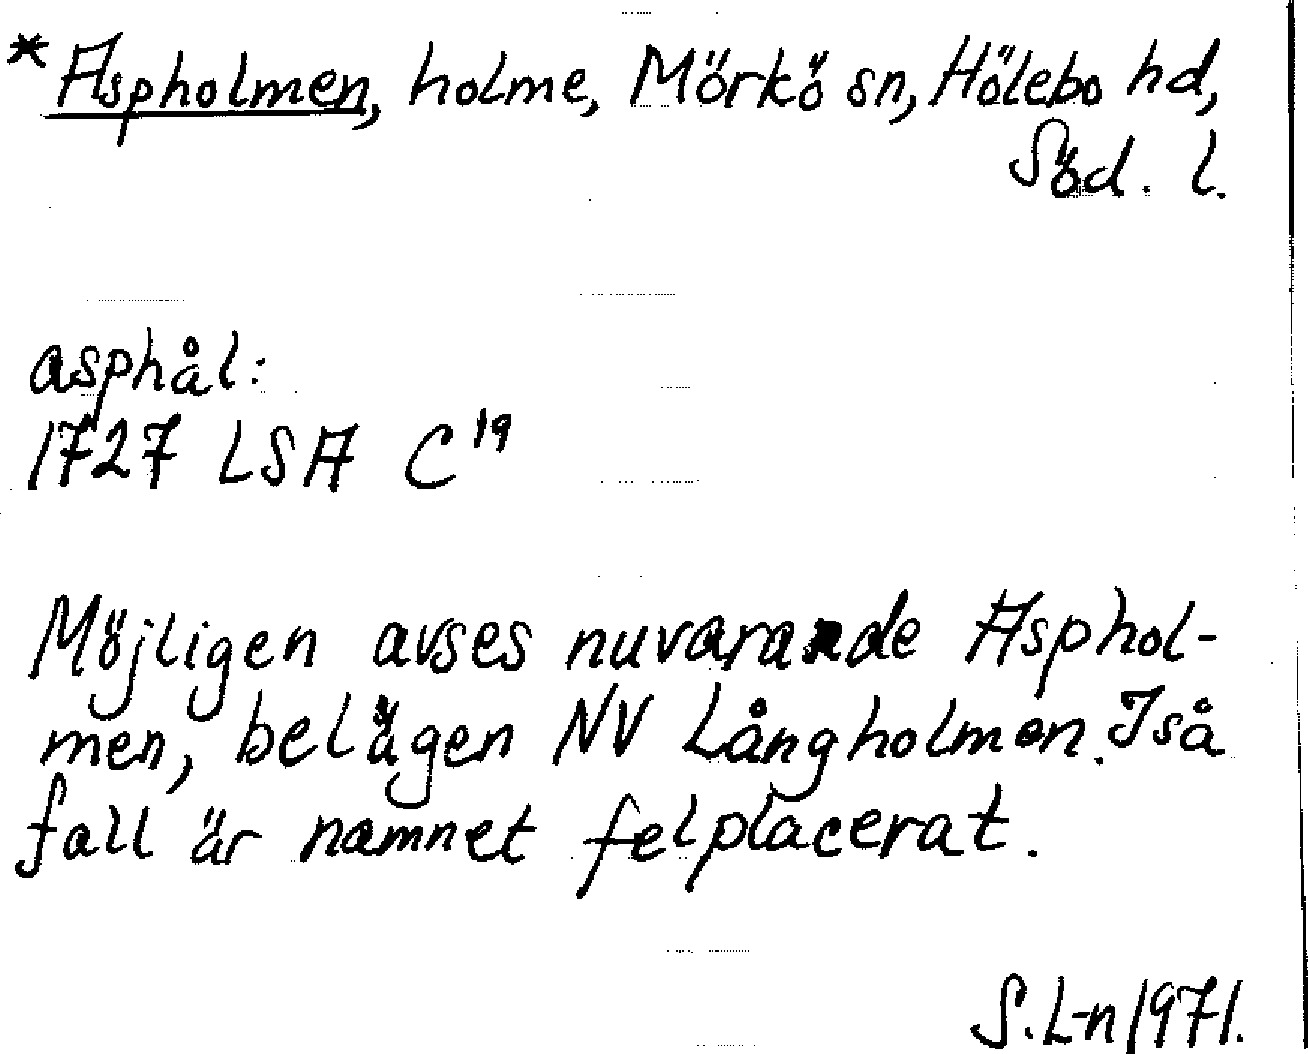 *Aspholmen, holme, Mörkö sn, Hölebo hd,
Söd. l.
asphål:
1727 LSA C¹⁹
Möjligen avses nuvarande Asphol-
men, belägen NV Långholmen. I så
fall är namnet felplacerat.
S.L-n 1971.